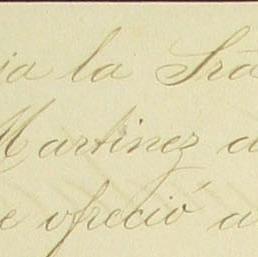 la Sra
Martinez
ofreció a